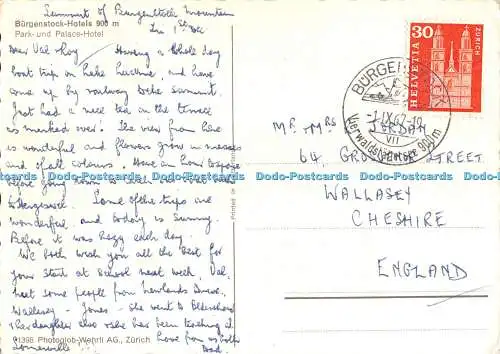 Summit of Bürgenstock Mountain
Bürgenstock-Hotels 900 m
Park- und Palace-Hotel
Dear Val & Roy Having a whole day
boat trip on Lake Lucerne, and have
come up by railway to the summit.
Just had a nice tea on the terrace
as marked over! The view from here
is wonderful and flowers grow in masses
and of all colours. Have an hour to
before going down to
Some of the trips are
wonderful, and today is Sunny.
Before it was hazy each day.
We both wish you all the best for
your start at School next week, Val,
met some people from Newlands Drive,
Wallasey - Jones. She went to
daughter also &she has been teaching at
Somerville. Love from us both
Dad.
91398 Photoglob-Wehrli AG., Zürich
Printed in
30
HELVETIA
ZÜRICH
BÜRGENSTOCK
-1.IX.62-18
VII
Vierwaldstättersee 900m
MR & MRS JORDAN
64, STREET
WALLASEY
CHESHIRE
ENGLAND
Dodo-Postcards Dodo-Postcards Dodo-Postcards Dodo-Postcards